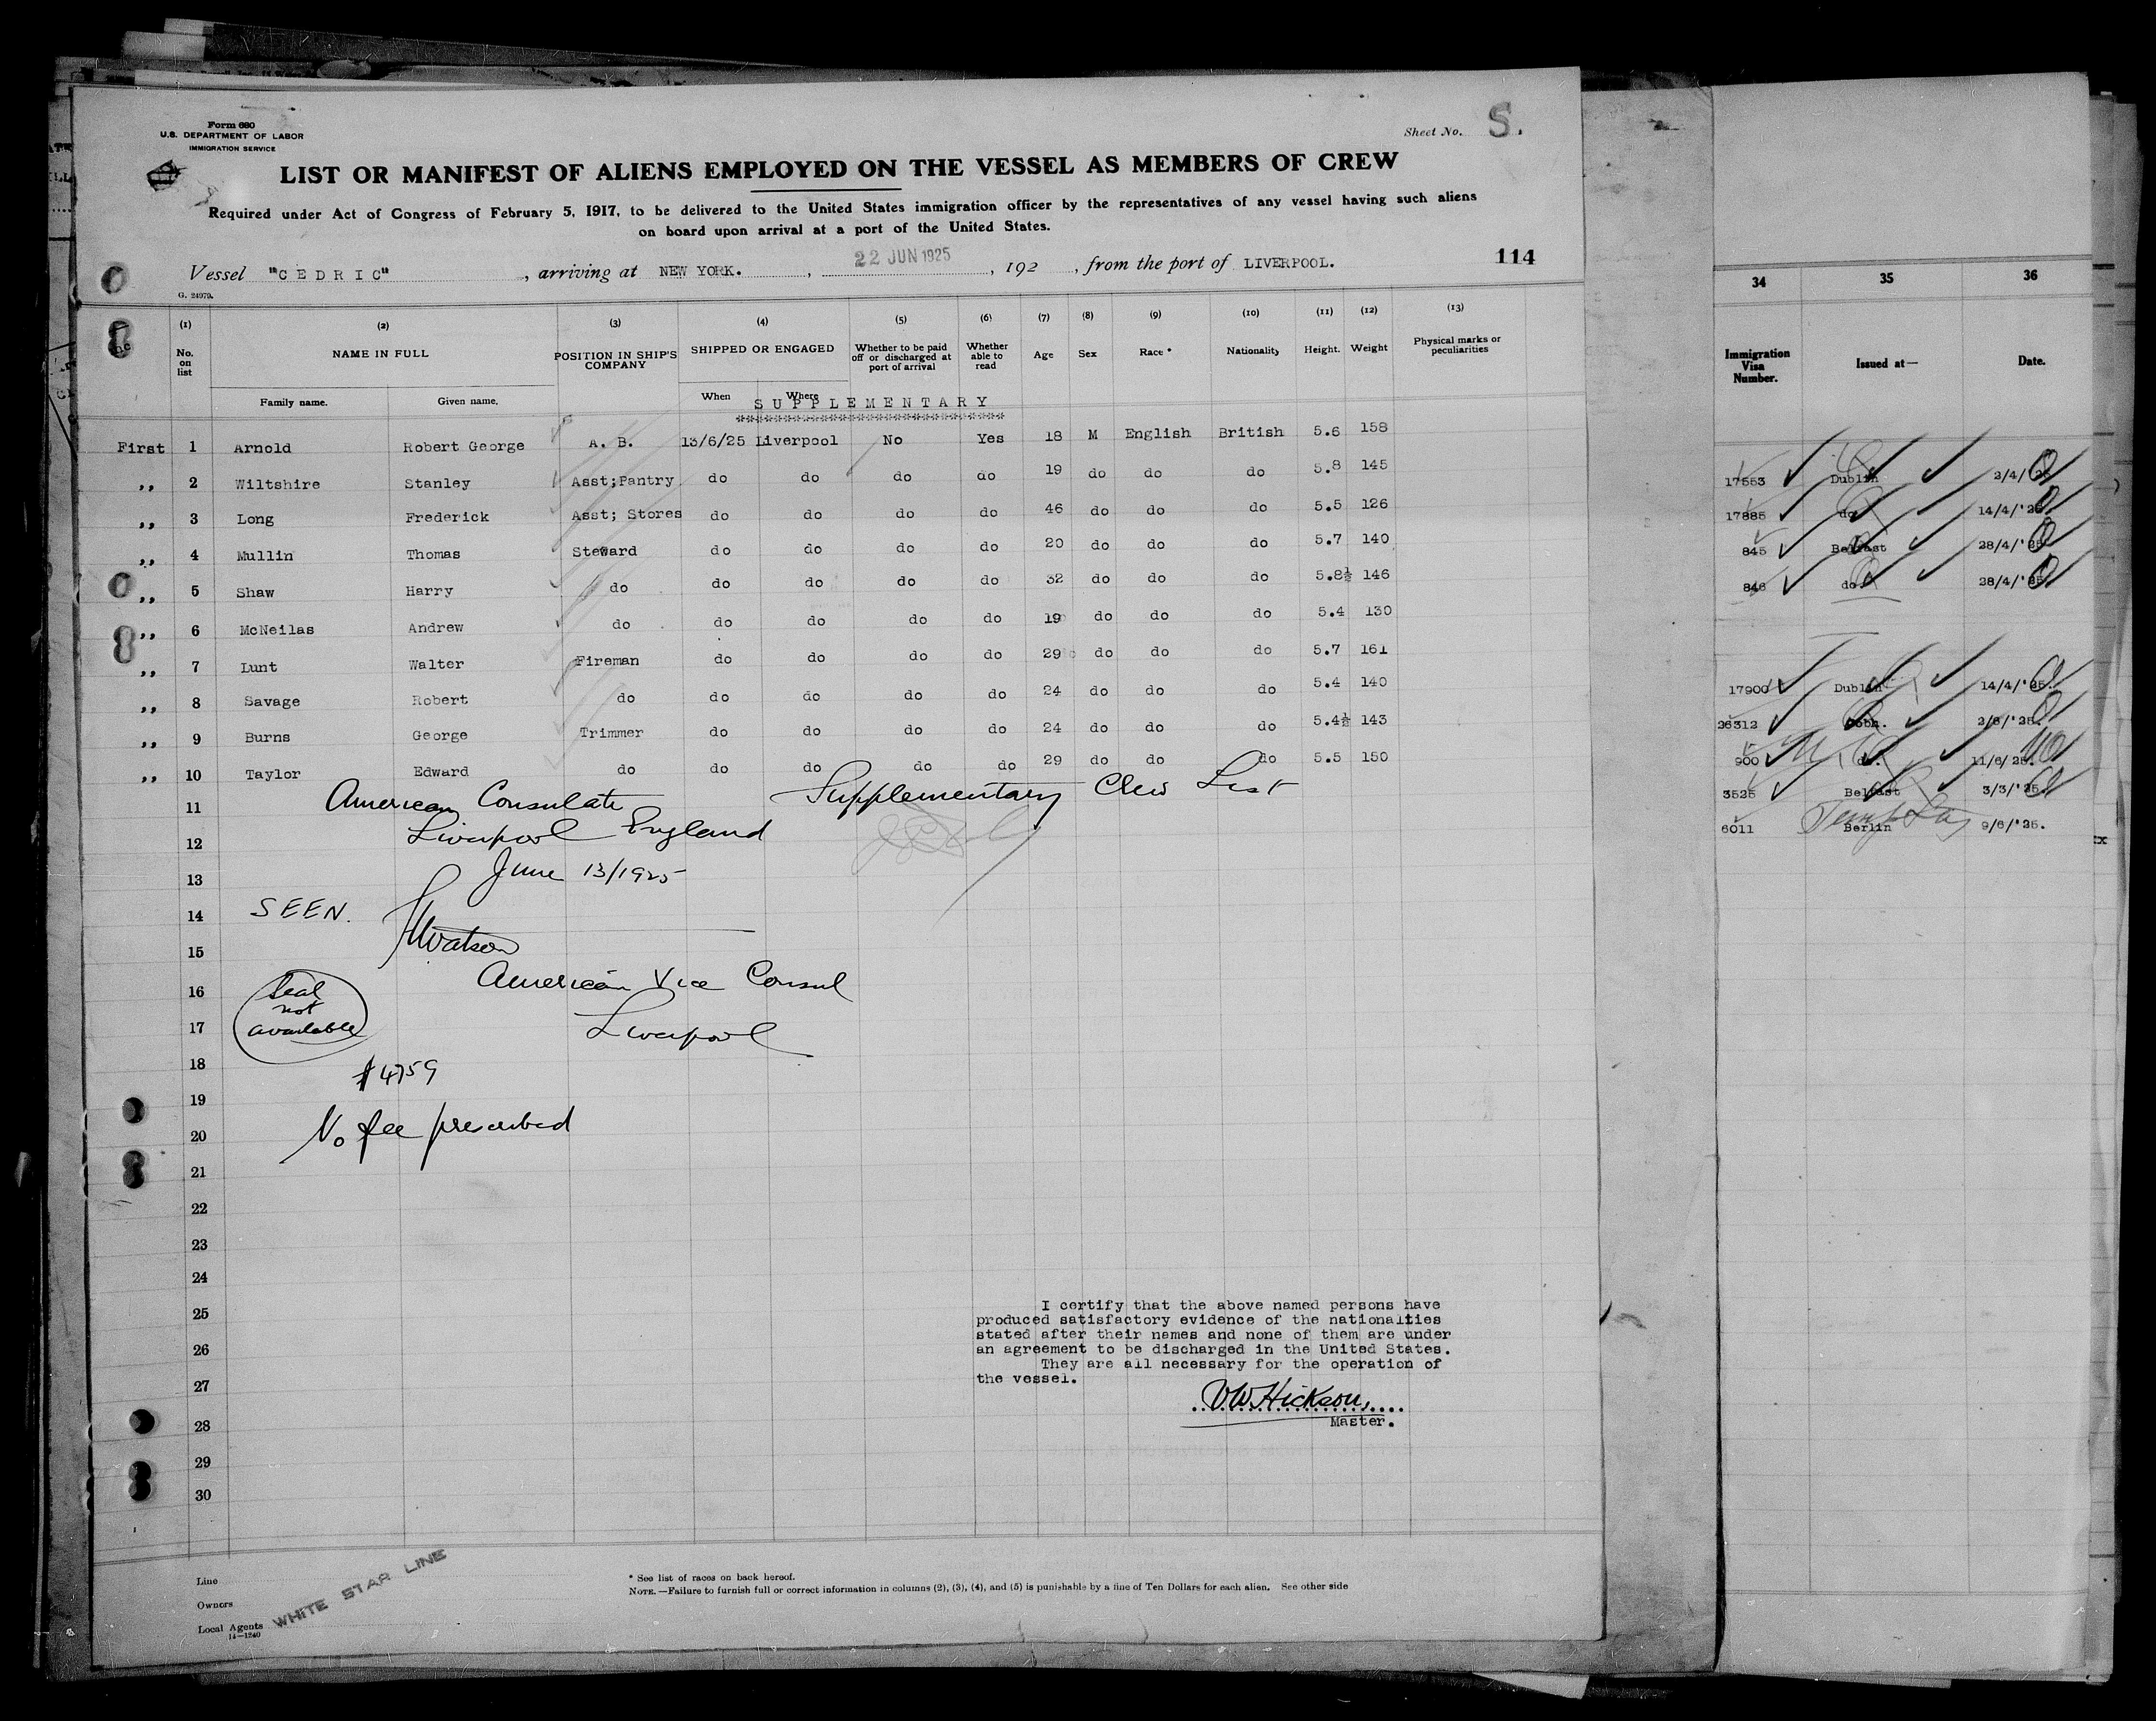 Form 680
U.S. DEPARTMENT OF LABOR
IMMIGRATION SERVICE
Sheet No. S.
LIST OR MANIFEST OF ALIENS EMPLOYED ON THE VESSEL AS MEMBERS OF CREW
Required under Act of Congress of February 5, 1917, to be delivered to the United States immigration officer by the representatives of any vessel having such aliens
on board upon arrival at a port of the United States.
Vessel "CEDRIC", arriving at NEW YORK., 22 JUN 1925, 192 , from the port of LIVERPOOL. 114
G. 24979.
(1) (2) (3) (4) (5) (6) (7) (8) (9) (10) (11) (12) (13)
No. on list NAME IN FULL POSITION IN SHIP'S COMPANY SHIPPED OR ENGAGED Whether to be paid off or discharged at port of arrival Whether able to read Age Sex Race * Nationality Height. Weight Physical marks or peculiarities
Family name. Given name. When Where
SUPPLEMENTARY
First 1 Arnold Robert George A. B. 13/6/25 Liverpool No Yes 18 M English British 5.6 158
,, 2 Wiltshire Stanley Asst;Pantry do do do do 19 do do do 5.8 145
,, 3 Long Frederick Asst; Stores do do do do 46 do do do 5.5 126
,, 4 Mullin Thomas Steward do do do do 20 do do do 5.7 140
,, 5 Shaw Harry do do do do do 32 do do do 5.8½ 146
,, 6 McNeilas Andrew do do do do do 19 do do do 5.4 130
,, 7 Lunt Walter Fireman do do do do 29 do do do 5.7 161
,, 8 Savage Robert do do do do do 24 do do do 5.4 140
,, 9 Burns George Trimmer do do do do 24 do do do 5.4½ 143
,, 10 Taylor Edward do do do do do 29 do do do 5.5 150
11 American Consulate Supplementary Crew List
12 Liverpool England
13 June 13/1925
14 SEEN.
15 Watson
16 American Vice Consul
Seal not available
17 Liverpool
18 #4759
19
20 No fee prescribed
21
22
23
24
25
26
27
28
29
30
I certify that the above named persons have
produced satisfactory evidence of the nationalities
stated after their names and none of them are under
an agreement to be discharged in the United States.
They are all necessary for the operation of
the vessel.
VW Hickson,
Master.
Line
Owners
Local Agents
14—1240
WHITE STAR LINE
* See list of races on back hereof.
NOTE.—Failure to furnish full or correct information in columns (2), (3), (4), and (5) is punishable by a fine of Ten Dollars for each alien. See other side
34 35 36
Immigration Visa Number. Issued at— Date.
17553 Dublin 2/4/'25
17885 do. 14/4/'25
845 Belfast 28/4/'25
846 do. 28/4/'25
17900 Dublin 14/4/'25.
26312 Cobh. 2/6/'25.
900 do. 11/6/'25.
3525 Belfast 3/3/'25.
6011 Berlin 9/6/'25.